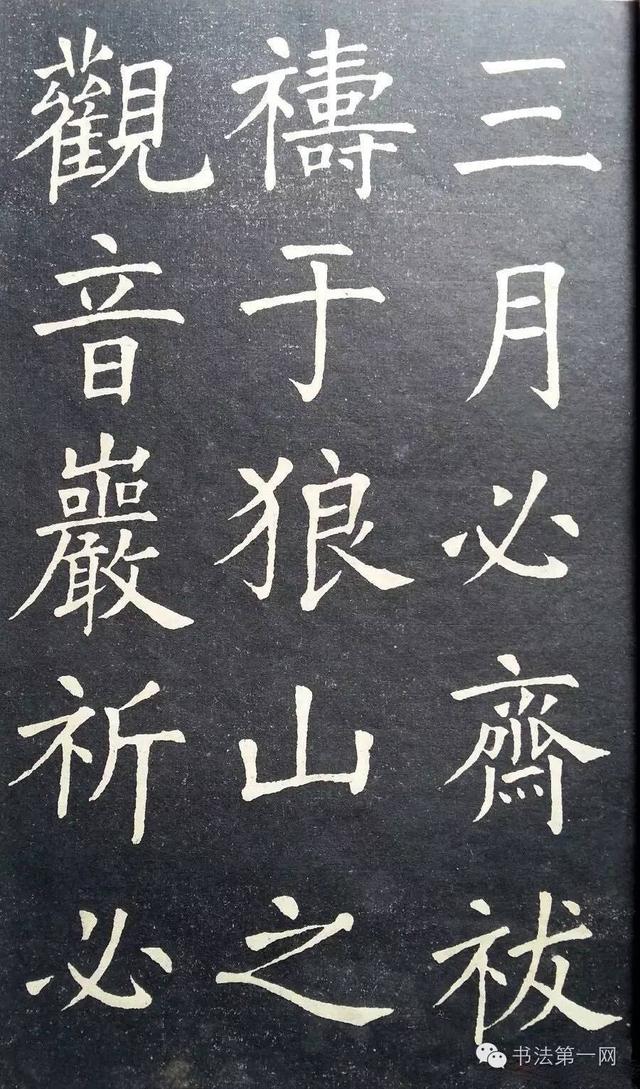 三月必齋祓
禱于狼山之
觀音巖祈必
书法第一网